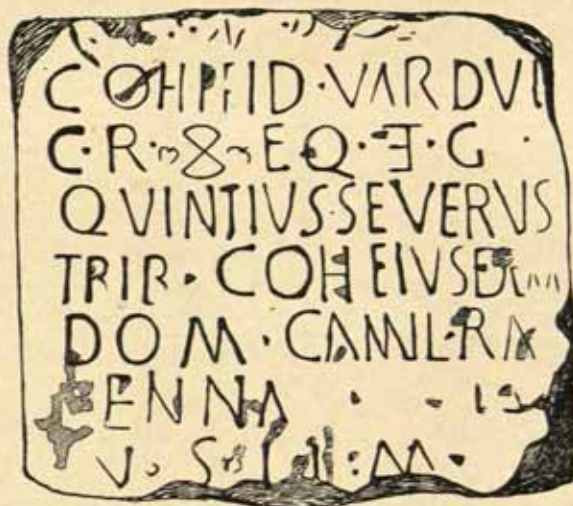 COH I FID · VARDVL
C · R · ∞ · EQ · ET · G
QVINTIVS · SEVERVS
TRIB · COH EIVSDEM
DOM · CAMIL · RA
ENNA
V · S · L · M ·